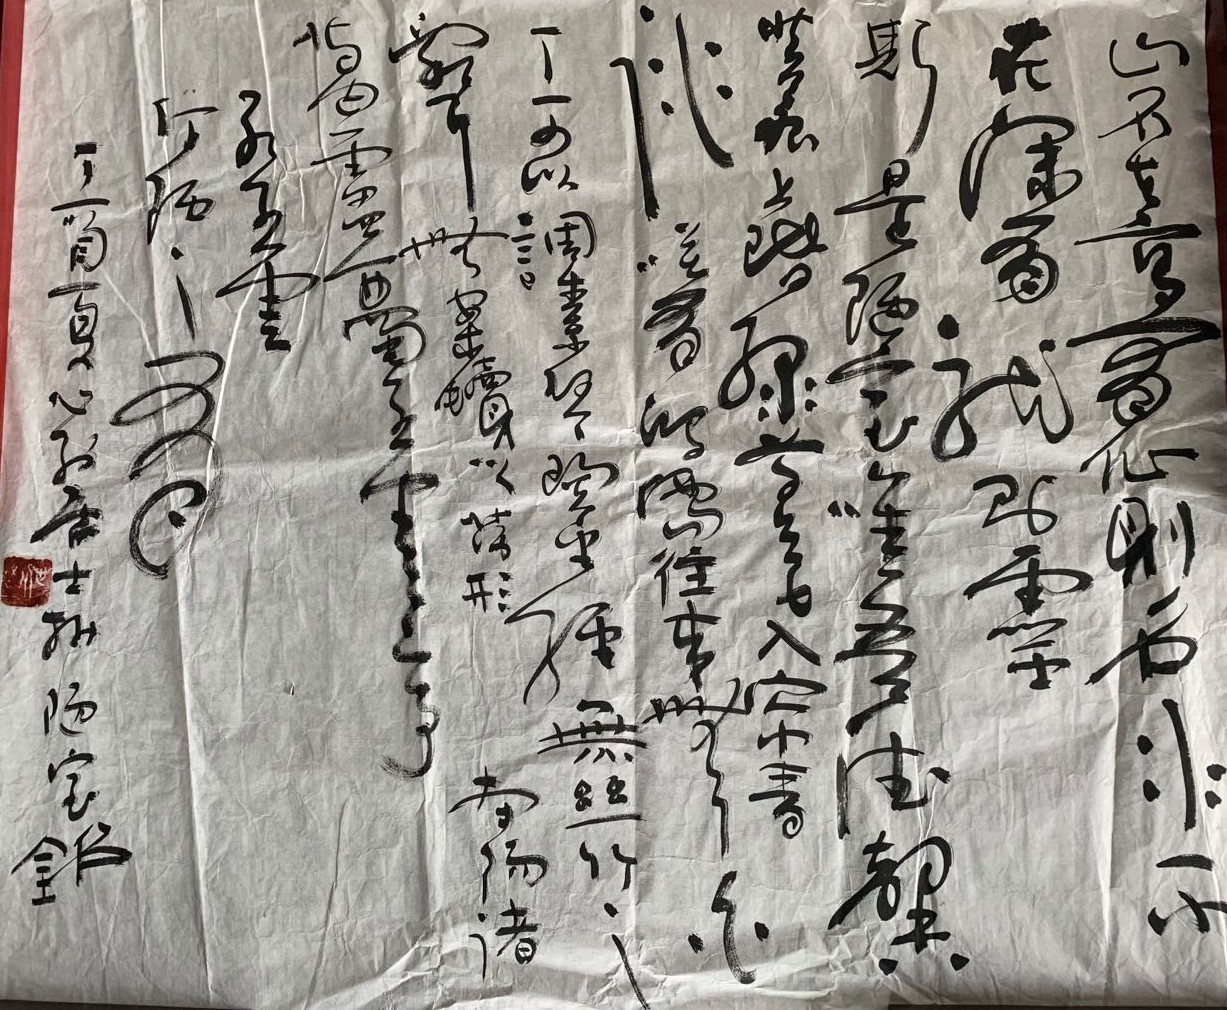 山不在高有仙則名水不
在深有龍則靈
斯是陋室惟吾德馨
苔痕上階綠草色入簾青
談笑有鴻儒往來無白
丁可以調素琴閱金經無絲竹之
亂耳無案牘以勞形南陽諸
葛廬西蜀子雲亭
孔子雲
何陋之有
居士抄陋室銘